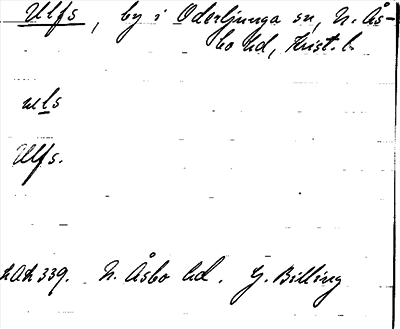 Ulfs, by i Oderljunga sn, N. Ås-
bo hd, Krist. l.
uls
Ulfs.
LAL 339. N. Åsbo hd. G. Billing